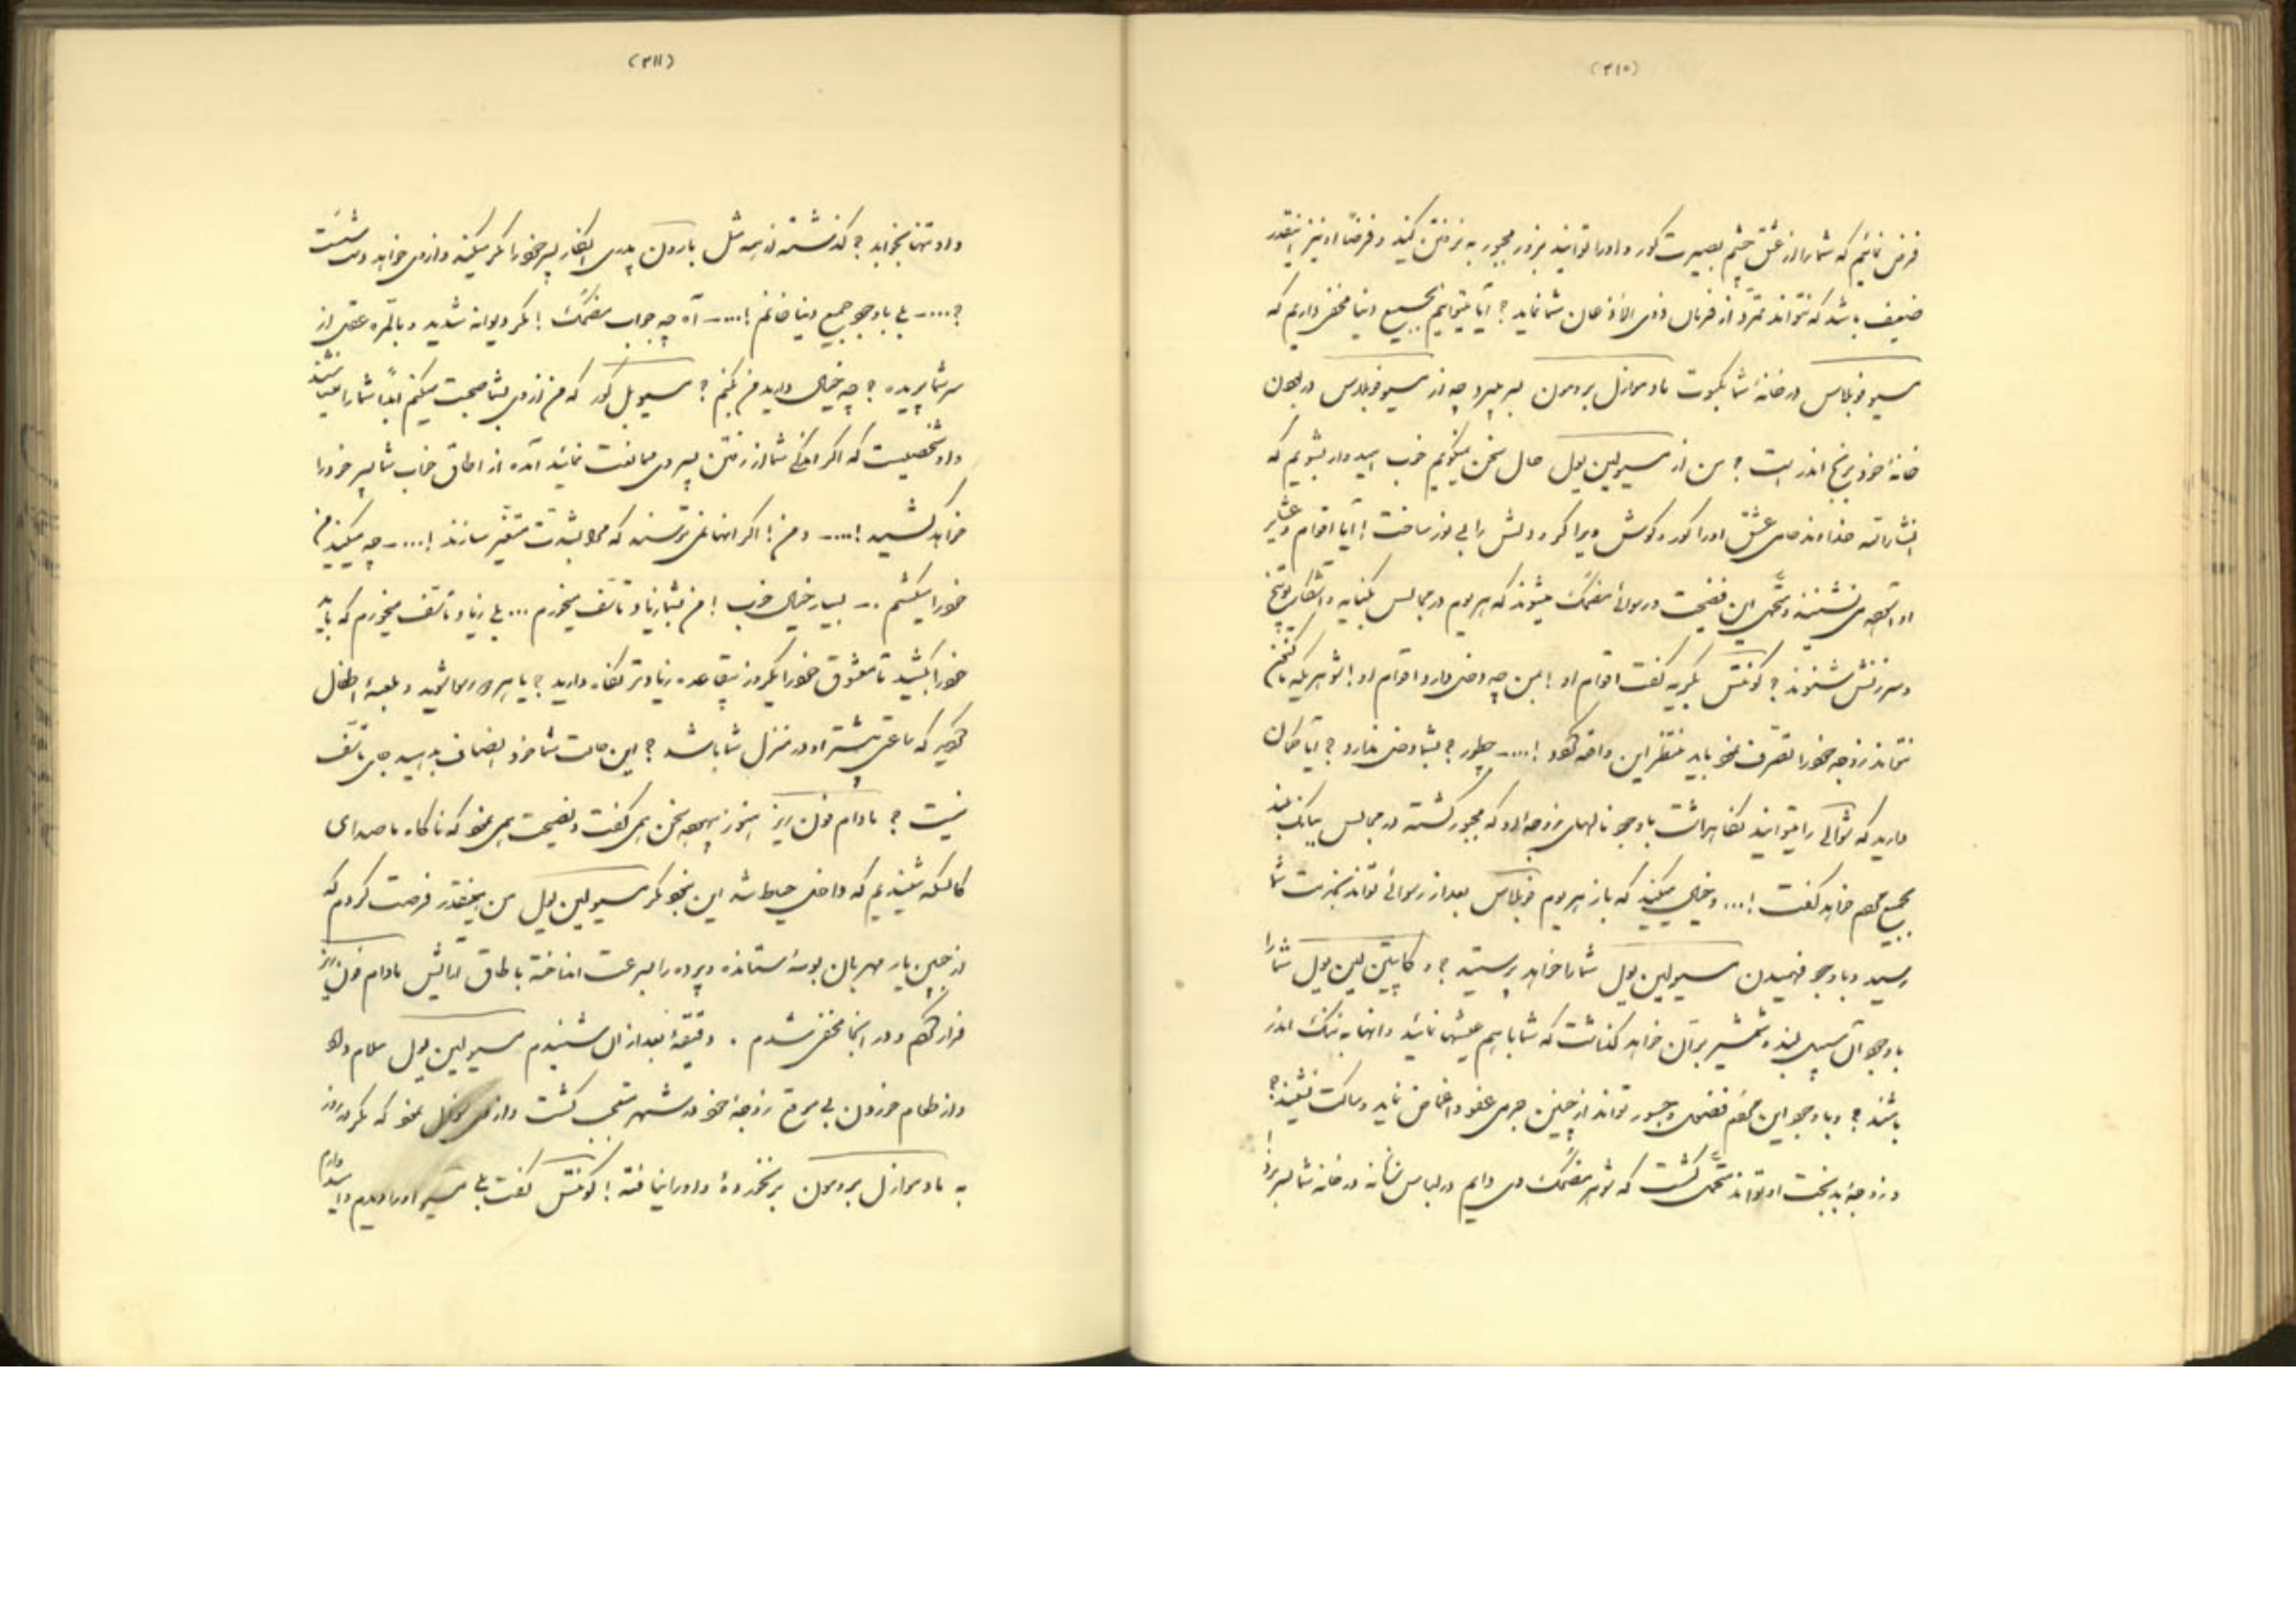 (۲۱۰)
فرض نمائیم که شما را از عشق چشم بصیرت کور و او را توانید بزور مجبور به نرفتن کنید و فرضاً او نیز اینقدر
ضعیف باشد که نتواند تمرد از فرمان شما نماید ؟ آیا میتوانیم بجمیع دنیا مخفی داریم که
مسیو فوبلاس در خانهٔ شما بکسوت مادموازل برومون بسر میبرد چه از مسیو فوبلاس در بودن
خانهٔ خود برنج اندر است ؟ من از مسیو لین یول حال سخن میگویم خوب امیدوار بشویم که
انشاءالله خداوند عشق او را کور و گوشش ویرا کر و دلش را بی نور ساخت ! آیا اقوام و عشایر
او متحمل این فضیحت و رسوائی مضحک میشوند که هر یوم در مجالس بکنایه و آشکار توبیخ
و سرزنش شنوند ؟ کونتس بگریه گفت اقوام او ! بمن چه دخلی دارد اقوام او ! شوهریکه
نتواند زوجه خود را تصرف نمود باید منتظر این واقعه بود !.... چطور ؟ بشما دخلی ندارد ؟ آیا گمان
دارید که را میتوانید نگاهداشت با وجود نالهای زوجه او که مجبور گشته در مجالس ببانگ بلند
بجمیع مردم خواهد گفت !... و خیال میکنید که باز هر یوم فوبلاس بعد از رسوائی تواند بخدمت شما
رسید و با وجود فهمیدن مسیو لین یول شما را خواهد پرستید ؟ و کاپیتن لین یول شما را
با وجود آن سبیل بلند و شمشیر بران خواهد گذاشت که شما با هم عیشها نمائید و آنها به ننگ اندر
باشند ؟ و با وجود این جسور تواند از چنین جرمی عفو و اغماض نماید و ساکت نشیند ؟
و زوجهٔ بدبخت او تواند متحمل گشت که شوهر مضحک وی دایم در لباس نسانه در خانه شما بسر برد
(۲۱۱)
داد و تنها بخوابد ؟ گذشته از همه مثل بارون پدری انکار پسر خود را مگر میکند و از وی خواهد دست شست
؟.... بلی با وجود جمیع دنیا خانم !.... آه چه جواب مضحک ! مگر دیوانه شدید و بالمره عقل از
سر شما پریده ؟ چه خیال دارید من بکنم ؟ مسیو بل کور که من از وی بشما صحبت میکنم ابداً شما را نمیشناسد
و او شخصیست که اگر اندکی شما از رفتن پسر وی ممانعت نمائید آمده از اطاق خواب شما پسر خود را
خواهد کشید !.... و من ! اگر آنها نمی ترسند که مرا بشدت متغیر سازند !.... چه میکنید من
خود را میکشم .. بسیار خیال خوب ! من بشما زیاد تأسف میخورم ... بلی زیاد تأسف میخورم که باید
خود را بکشید تا معشوق خود را یکروز بقاعده زیادتر نگاه دارید ؟ یا هر روز رسوا شوید و لعبهٔ اطفال
گردید که ساعتی بیشتر او در منزل شما باشد ؟ این حالت شما خود انصاف بدهید جای تأسف
نیست ؟ مادام فون رز هنوز همچه سخن همی گفت و نصیحت همی نمود که ناگاه ما صدای
کالسکه شنیدیم که داخل حیاط شد این نبود مگر مسیو لین یول من اینقدر فرصت کردم که
از چنین یار مهربان بوسهٔ ستانده و پرده را بسرعت انداخته باطاق آرایش مادام فون رز
فرار کردم و در آنجا مخفی شدم . دقیقهٔ بعد از آن شنیدم مسیو لین یول سلام داد
و از طعام خوردن بی موقع زوجهٔ خود در شهر متعجب گشت و از وی سؤال نمود که مگر در روز
به مادموازل برومون برنخورده و او را نیافته ! کونتس گفت بلی مسیو او را دیدم و امیدوارم